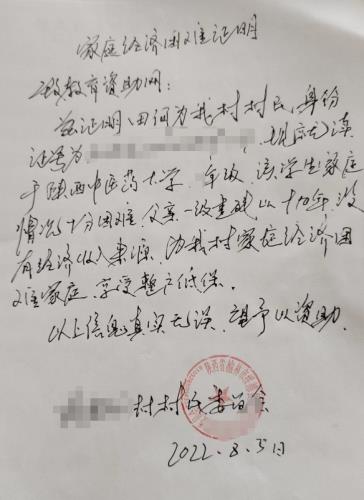 家庭经济困难证明
致教育资助网:
兹证明 田 为我村村民,身份
证号为 ,现就读
于陕西中医药大学 年级,该学生家庭
情况十分困难,父亲一级 残 十 年,没
有经济收入来源,为我村家庭经济困
难家庭,享受整户低保。
以上信息真实无误,望予以资助。
村村民委员会
2022.8.5日